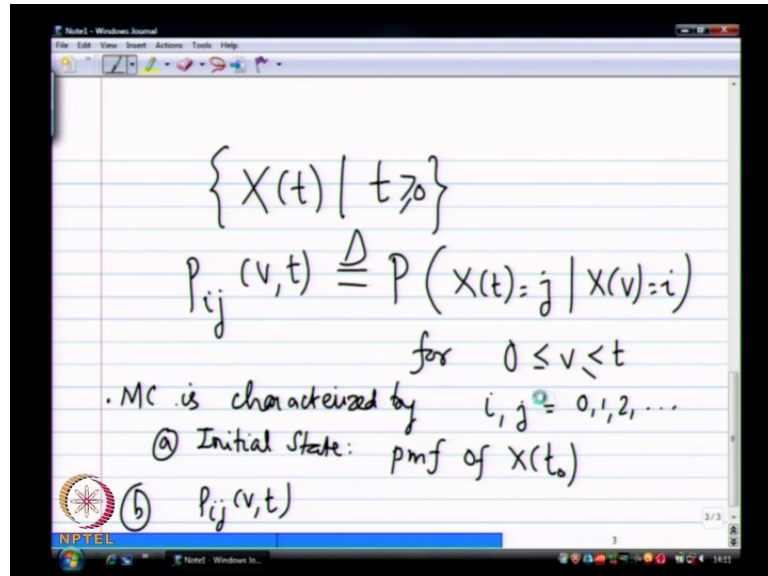 Note1 - Windows Journal
File Edit View Insert Actions Tools Help
{ X(t) | t ≥ 0 }
P_ij (v,t) ≜ P ( X(t) = j | X(v) = i )
for 0 ≤ v ≤ t
. MC is characterized by i, j = 0, 1, 2, ...
(a) Initial State: pmf of X(t_0)
(b) P_ij (v,t)
NPTEL
3/3
3
Note1 - Windows Jo...
14:11